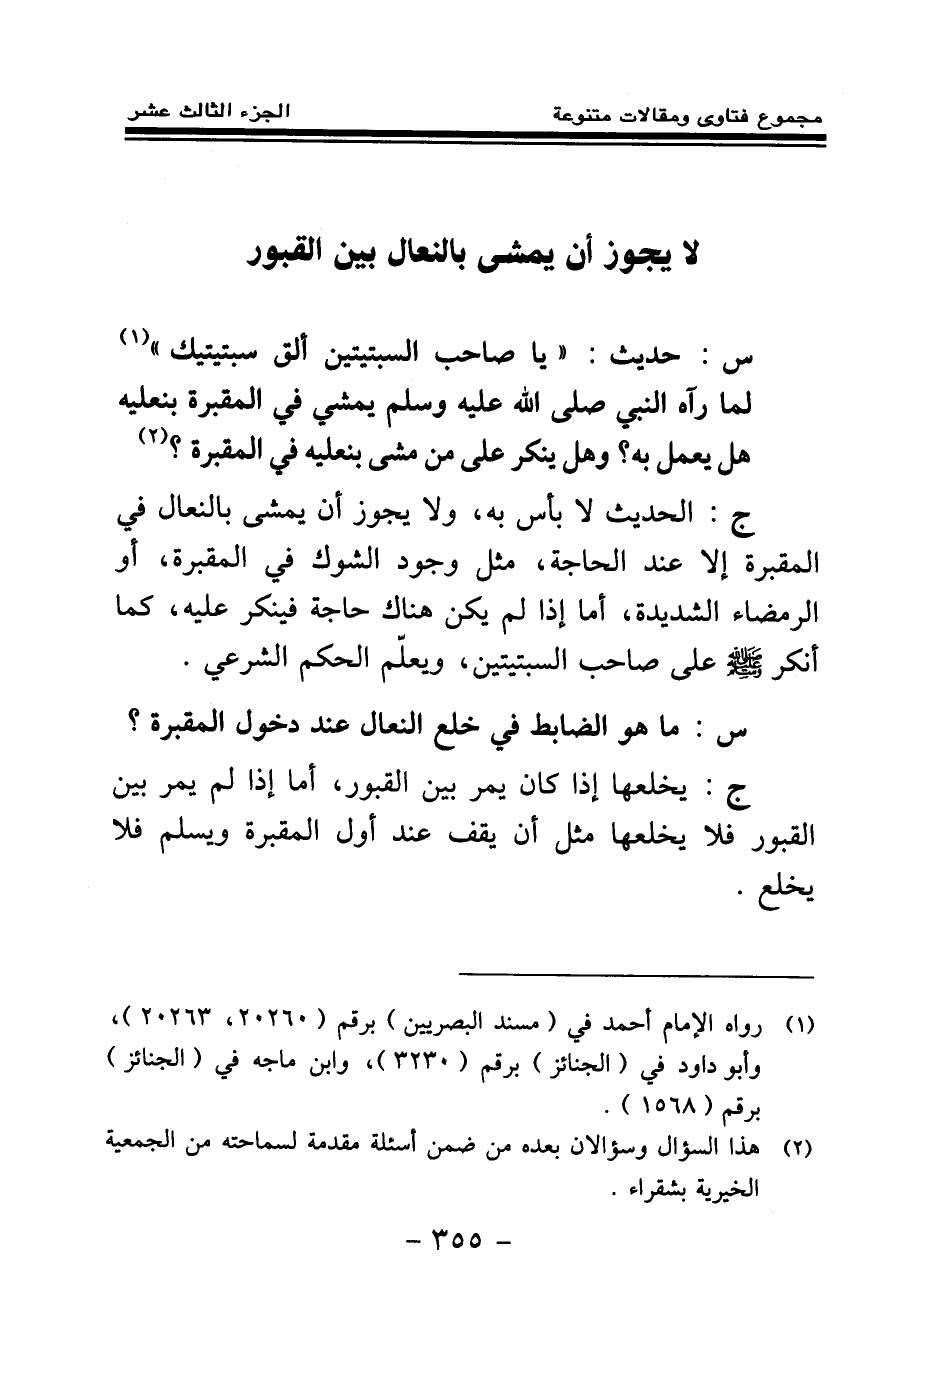 مجموع فتاوى ومقالات متنوعة الجزء الثالث عشر
لا يجوز أن يمشى بالنعال بين القبور
س : حديث : « يا صاحب السبتيتين ألق سبتيتيك »(١)
لما رآه النبي صلى الله عليه وسلم يمشي في المقبرة بنعليه
هل يعمل به؟ وهل ينكر على من مشى بنعليه في المقبرة ؟(٢)
ج : الحديث لا بأس به، ولا يجوز أن يمشى بالنعال في
المقبرة إلا عند الحاجة، مثل وجود الشوك في المقبرة، أو
الرمضاء الشديدة، أما إذا لم يكن هناك حاجة فينكر عليه، كما
أنكر ﷺ على صاحب السبتيتين، ويعلّم الحكم الشرعي .
س : ما هو الضابط في خلع النعال عند دخول المقبرة ؟
ج : يخلعها إذا كان يمر بين القبور، أما إذا لم يمر بين
القبور فلا يخلعها مثل أن يقف عند أول المقبرة ويسلم فلا
يخلع .
(١) رواه الإمام أحمد في ( مسند البصريين ) برقم ( ٢٠٢٦٠، ٢٠٢٦٣ )،
وأبو داود في ( الجنائز ) برقم ( ٣٢٣٠ )، وابن ماجه في ( الجنائز )
برقم ( ١٥٦٨ ) .
(٢) هذا السؤال وسؤالان بعده من ضمن أسئلة مقدمة لسماحته من الجمعية
الخيرية بشقراء .
– ٣٥٥ –